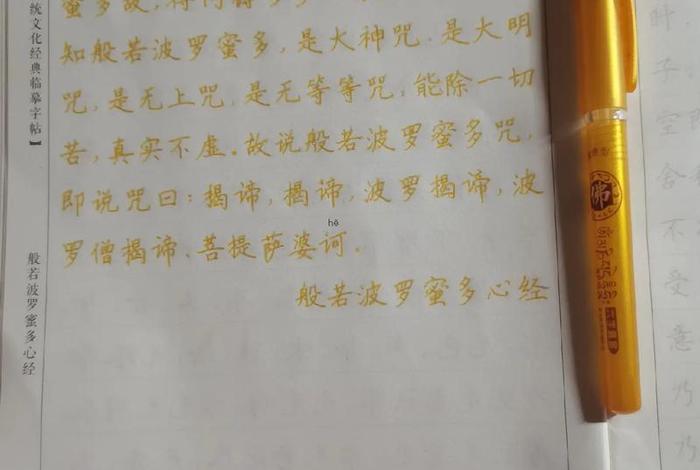 蜜多故，得阿耨多
知般若波罗蜜多，是大神咒，是大明
咒，是无上咒，是无等等咒，能除一切
苦，真实不虚。故说般若波罗蜜多咒，
即说咒曰：揭谛，揭谛，波罗揭谛，波
hē
罗僧揭谛、菩提萨婆诃。
般若波罗蜜多心经
统文化经典临摹字帖】
般若波罗蜜多心经
佛
子
空
舍
不
受
意
乃
乃